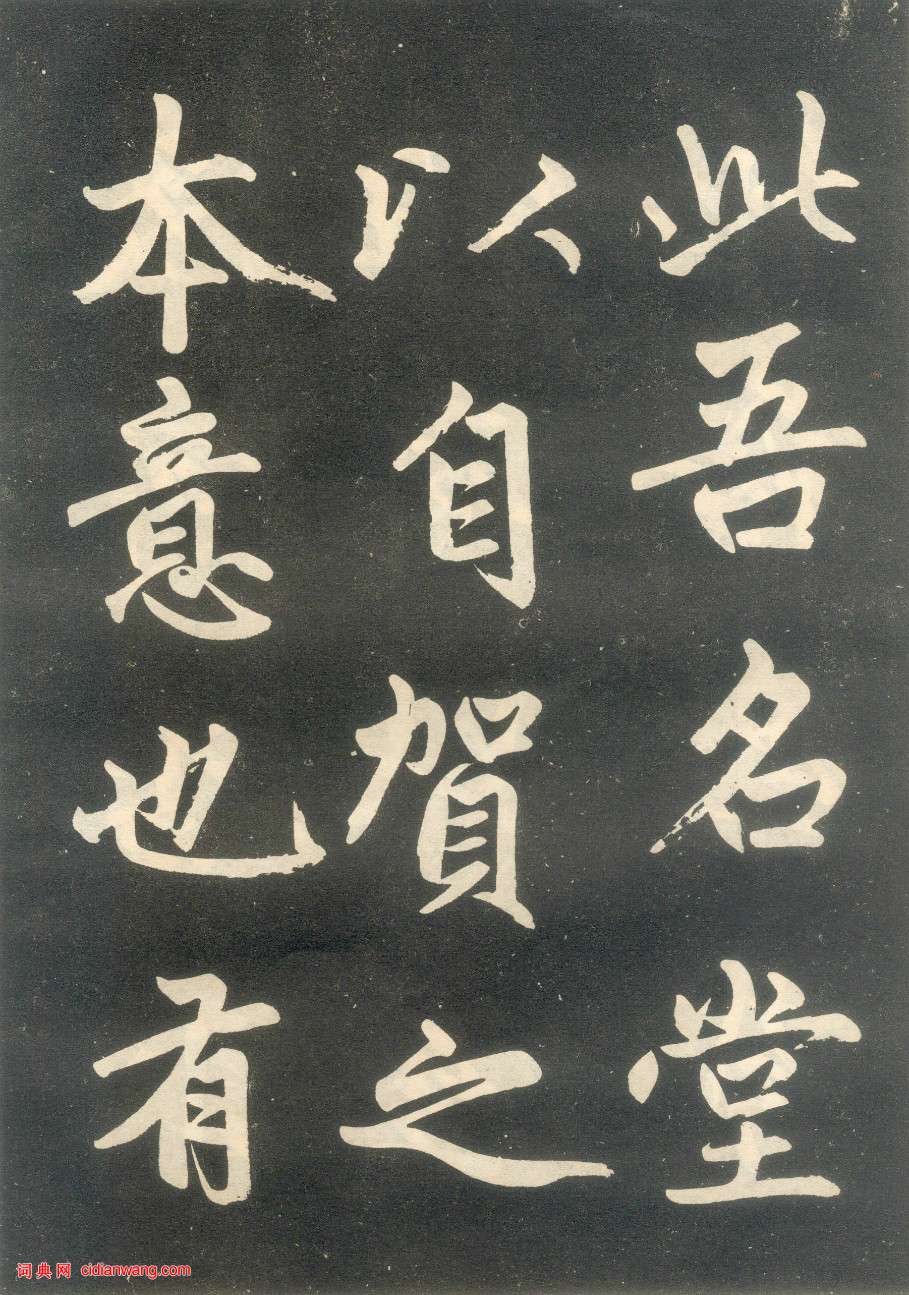 此吾名堂
以自賀之
本意也有
词典网 cidianwang.com